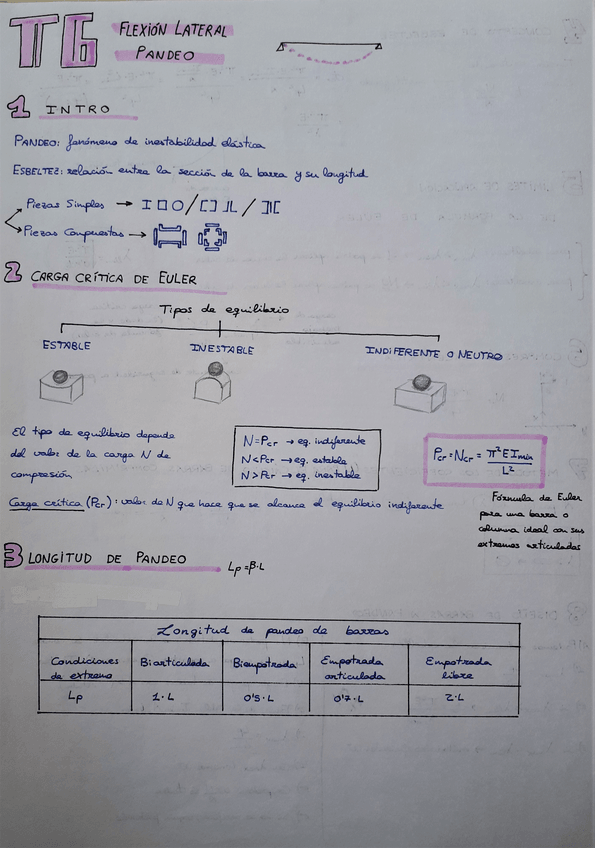 T6 FLEXIÓN LATERAL
PANDEO
1 INTRO
PANDEO: fenómeno de inestabilidad elástica
ESBELTEZ: relación entre la sección de la barra y su longitud
Piezas Simples →
Piezas Compuestas →
2 CARGA CRÍTICA DE EULER
Tipos de equilibrio
ESTABLE INESTABLE INDIFERENTE O NEUTRO
El tipo de equilibrio depende
del valor de la carga N de
compresión
N=Pcr → eq. indiferente
N<Pcr → eq. estable
N>Pcr → eq. inestable
Pcr = Ncr = π² E Imin / L²
Carga crítica (Pcr): valor de N que hace que se alcance el equilibrio indiferente
Fórmula de Euler
para una barra o
columna ideal con sus
extremos articulados
3 LONGITUD DE PANDEO Lp = β·L
Longitud de pandeo de barras
Condiciones de extremo Biarticulada Biempotrada Empotrada articulada Empotrada libre
Lp 1·L 0'5·L 0'7·L 2·L